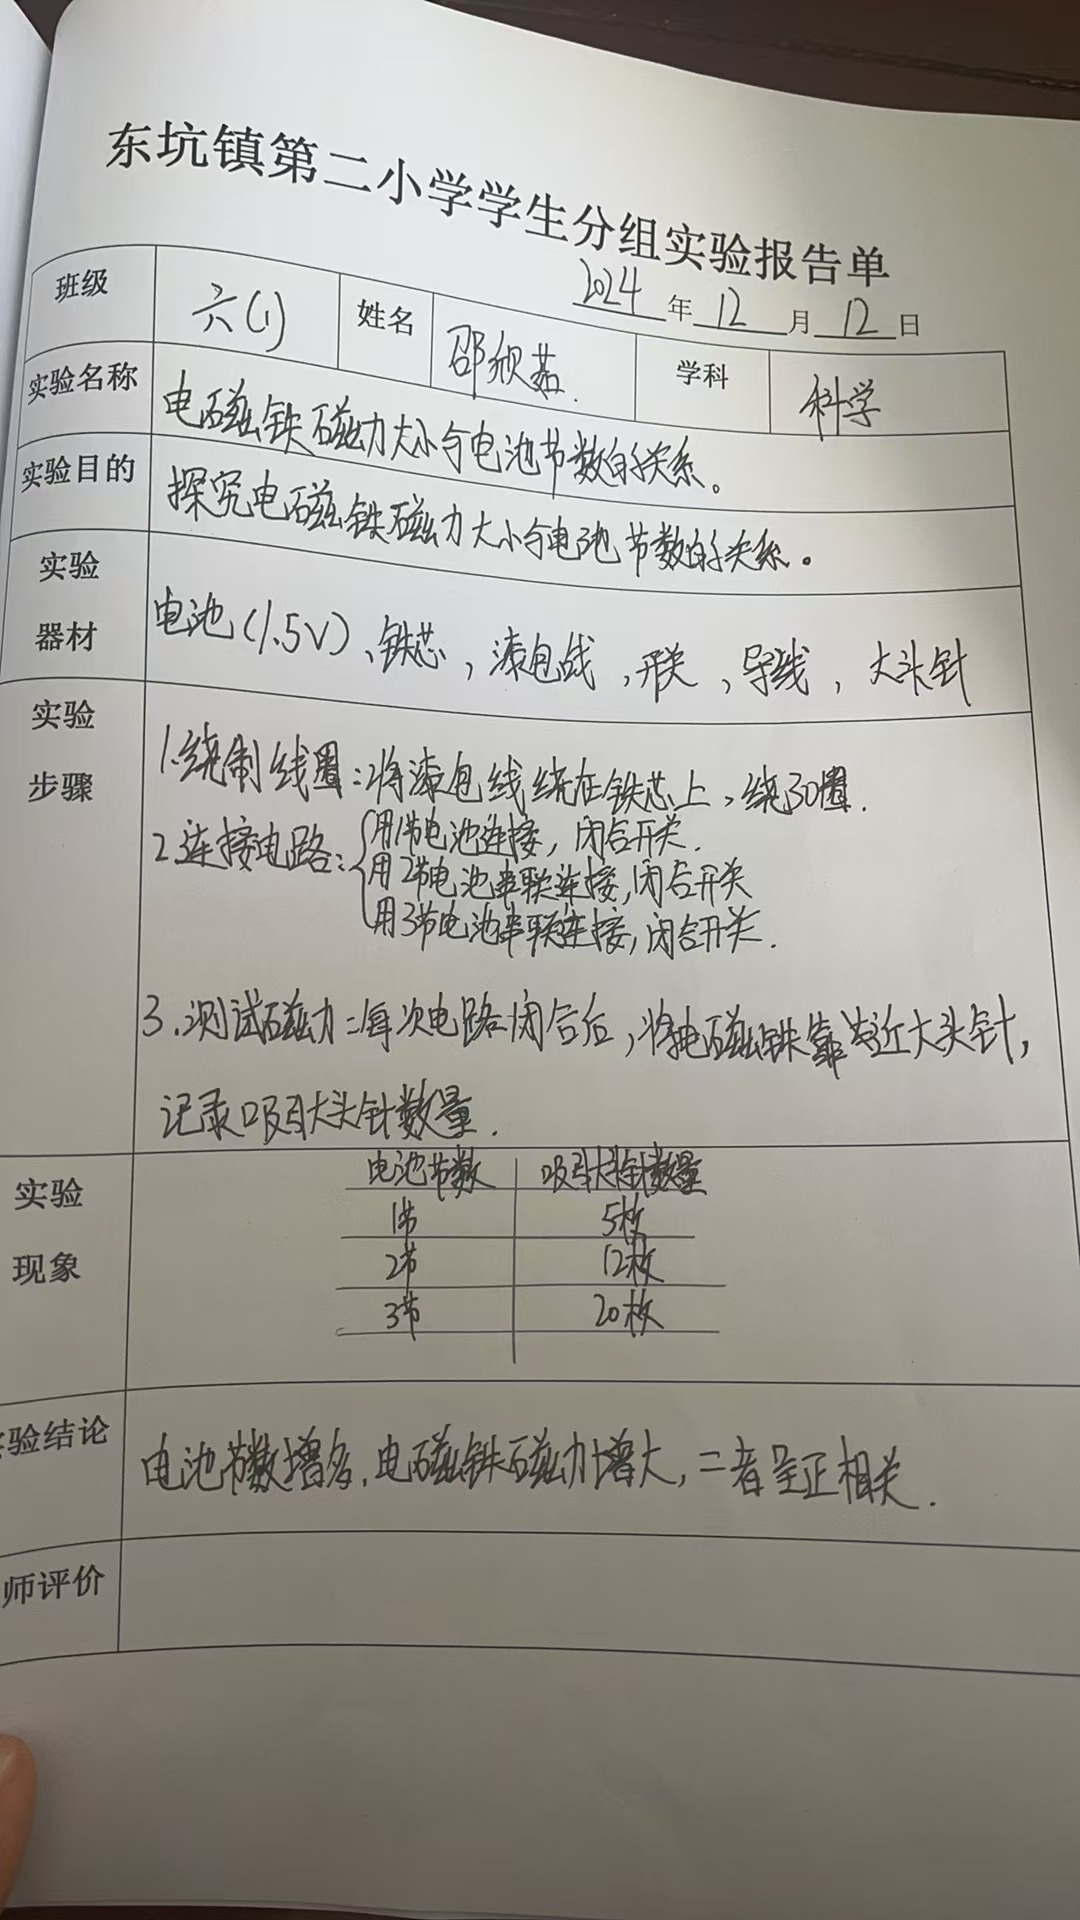 东坑镇第二小学学生分组实验报告单
2024年12月12日
班级 六(1) 姓名 邵欣茹. 学科 科学
实验名称 电磁铁磁力大小与电池节数的关系。
实验目的 探究电磁铁磁力大小与电池节数的关系。
实验
器材
电池(1.5V)、铁芯，漆包线，开关，导线，大头针
实验
步骤
1.绕制线圈：将漆包线绕在铁芯上，绕30圈.
2.连接电路：用1节电池连接，闭合开关.
用2节电池串联连接，闭合开关
用3节电池串联连接，闭合开关.
3.测试磁力：每次电路闭合后，将电磁铁靠近大头针，
记录吸引大头针数量.
实验
现象
电池节数 吸引大头针数量
1节 5枚
2节 12枚
3节 20枚
验结论 电池节数增多，电磁铁磁力增大，二者呈正相关.
师评价